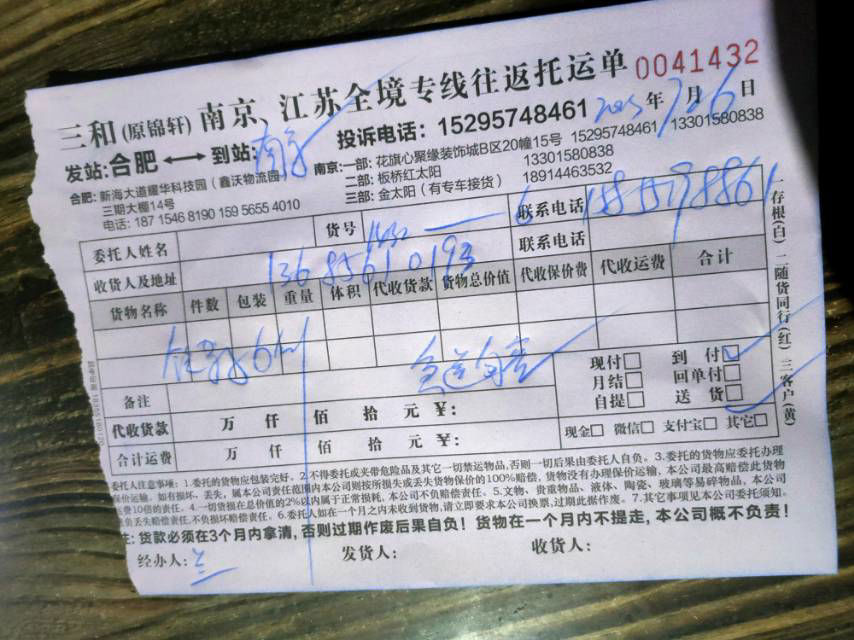 三和(原锦轩) 南京、江苏全境专线往返托运单 0041432
发站:合肥 ⟷ 到站: 南京 投诉电话: 15295748461 年7月26日
合肥: 新海大道耀华科技园(鑫沃物流园)
三期大棚14号
电话: 187 1546 8190 159 5655 4010
南京: 一部: 花旗心聚缘装饰城B区20幢15号 15295748461 13301580838
二部: 板桥红太阳 13301580838
三部: 金太阳(有专车接货) 18914463532
委托人姓名 货号 1432 — 6 联系电话
收货人及地址 13685610193 联系电话
货物名称 件数 包装 重量 体积 代收货款 货物总价值 代收保价费 代收运费 合计
备注
现付 到付 ✓
月结 回单付
自提 送货 ✓
代收货款 万 仟 佰 拾 元 ¥:
合计运费 万 仟 佰 拾 元 ¥:
现金 微信 支付宝 其它
委托人注意事项: 1.委托的货物应包装完好。2.不得委托或夹带危险品及其它一切禁运物品,否则一切后果由委托人自负。3.应委托的货物委托办理
保价运输。如有损坏、丢失,属本公司责任范围内本公司则按所损失或丢失货物保价的100%赔偿,货物没有办理保价运输,本公司最高赔偿此货物
费10倍的责任。4.一切货损在总价值的2%以内属于正常损耗,本公司不负赔偿责任。5.文物、贵重物品、液体、陶瓷、玻璃等易碎物品,本公司
负丢失赔偿责任,不负损坏赔偿责任。6.委托人如在一个月之内未收到货物,请立即要求本公司换票,过期此据作废。7.其它事项见本公司委托须知。
注: 货款必须在3个月内拿清,否则过期作废后果自负!货物在一个月内不提走,本公司概不负责!
经办人: 发货人: 收货人:
一存根(白) 二随货同行(红) 三客户(黄)